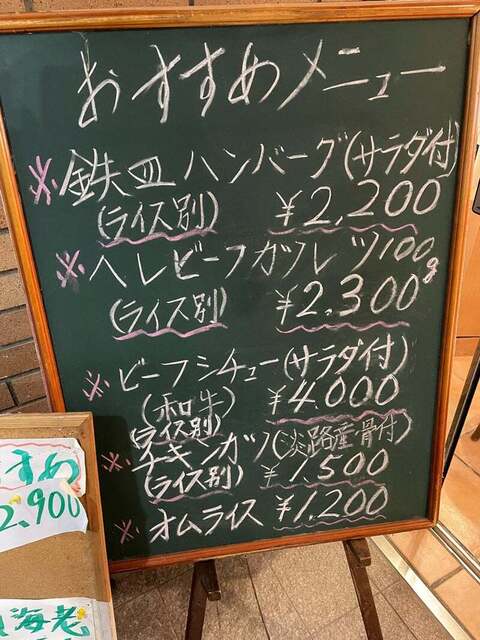 おすすめメニュー
※鉄皿ハンバーグ(サラダ付)
(ライス別) ¥2,200
※ヘレビーフカツレツ100g
(ライス別) ¥2,300
※ビーフシチュー(サラダ付)
(和牛) ¥4,000
(ライス別)
※チキンカツ(淡路産骨付)
(ライス別) ¥1,500
※オムライス ¥1,200
すすめ
2,900
海老